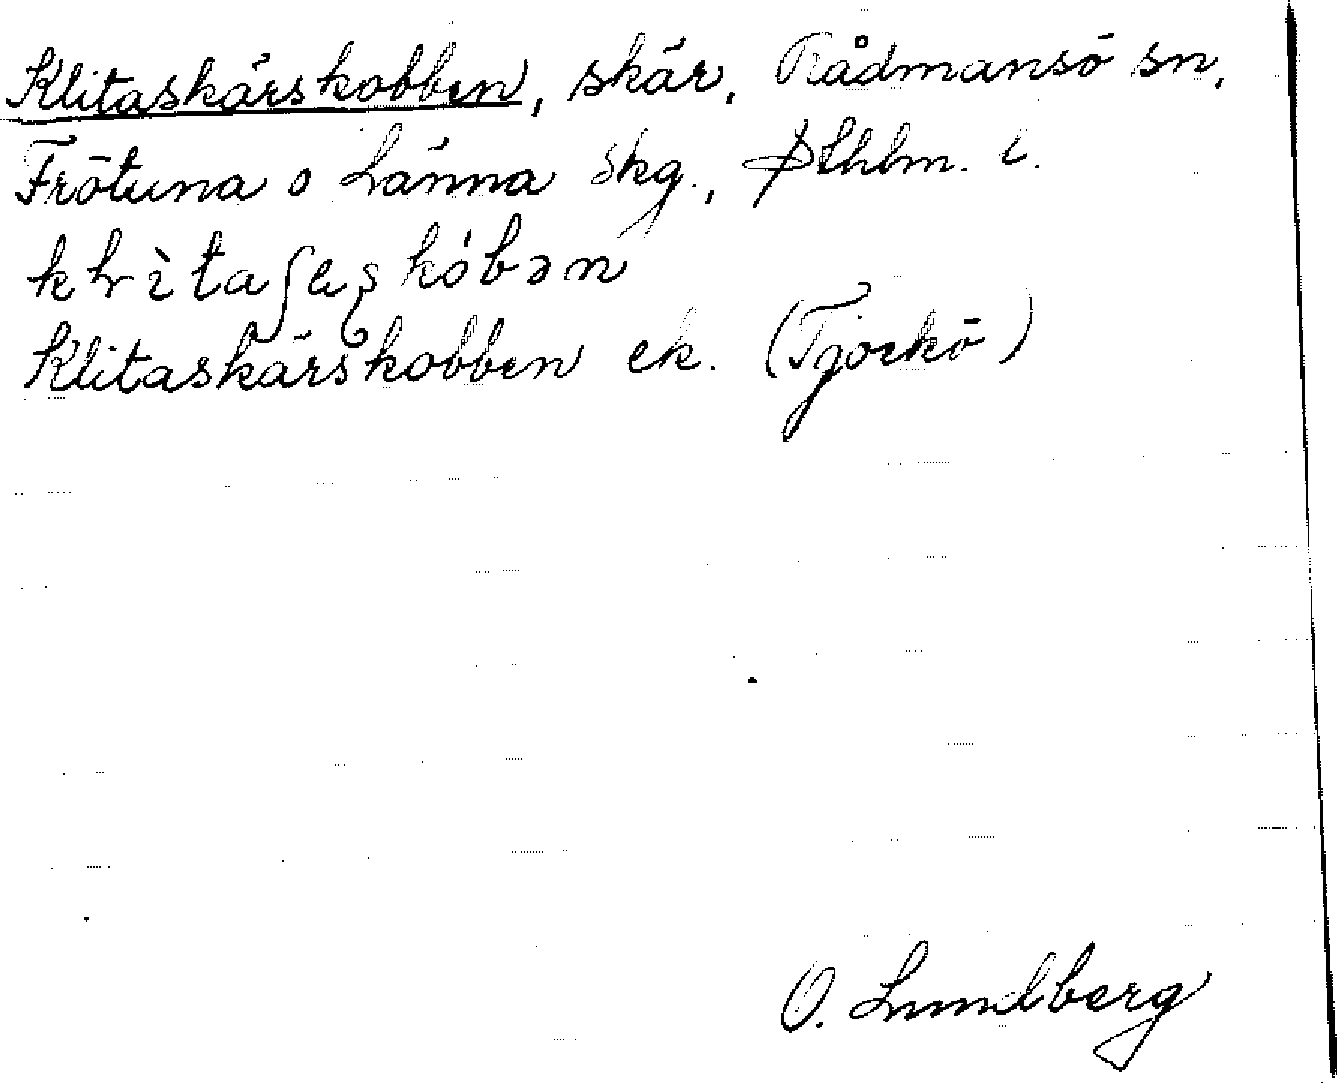 Klitaskärskobben, skär, Rådmansö sn,
Frötuna o Länna skg., Sthlm. l.
Klitaskärskobben ek. (Tjockö)
O. Lundberg